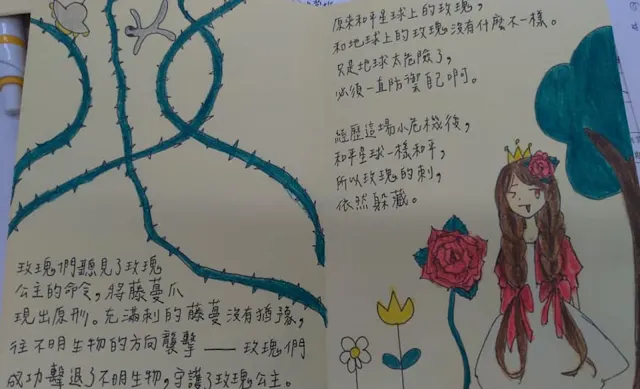 玫瑰們聽見了玫瑰
公主的命令，將藤蔓爪
現出原形。充滿刺的藤蔓沒有猶豫，
往不明生物的方向襲擊——玫瑰們
成功擊退了不明生物，守護了玫瑰公主。
原來和平星球上的玫瑰，
和地球上的玫瑰沒有什麼不一樣。
只是地球太危險了，
必須一直防禦自己啊。
經歷這場小危機後，
和平星球一樣和平，
所以玫瑰的刺，
依然躲藏。